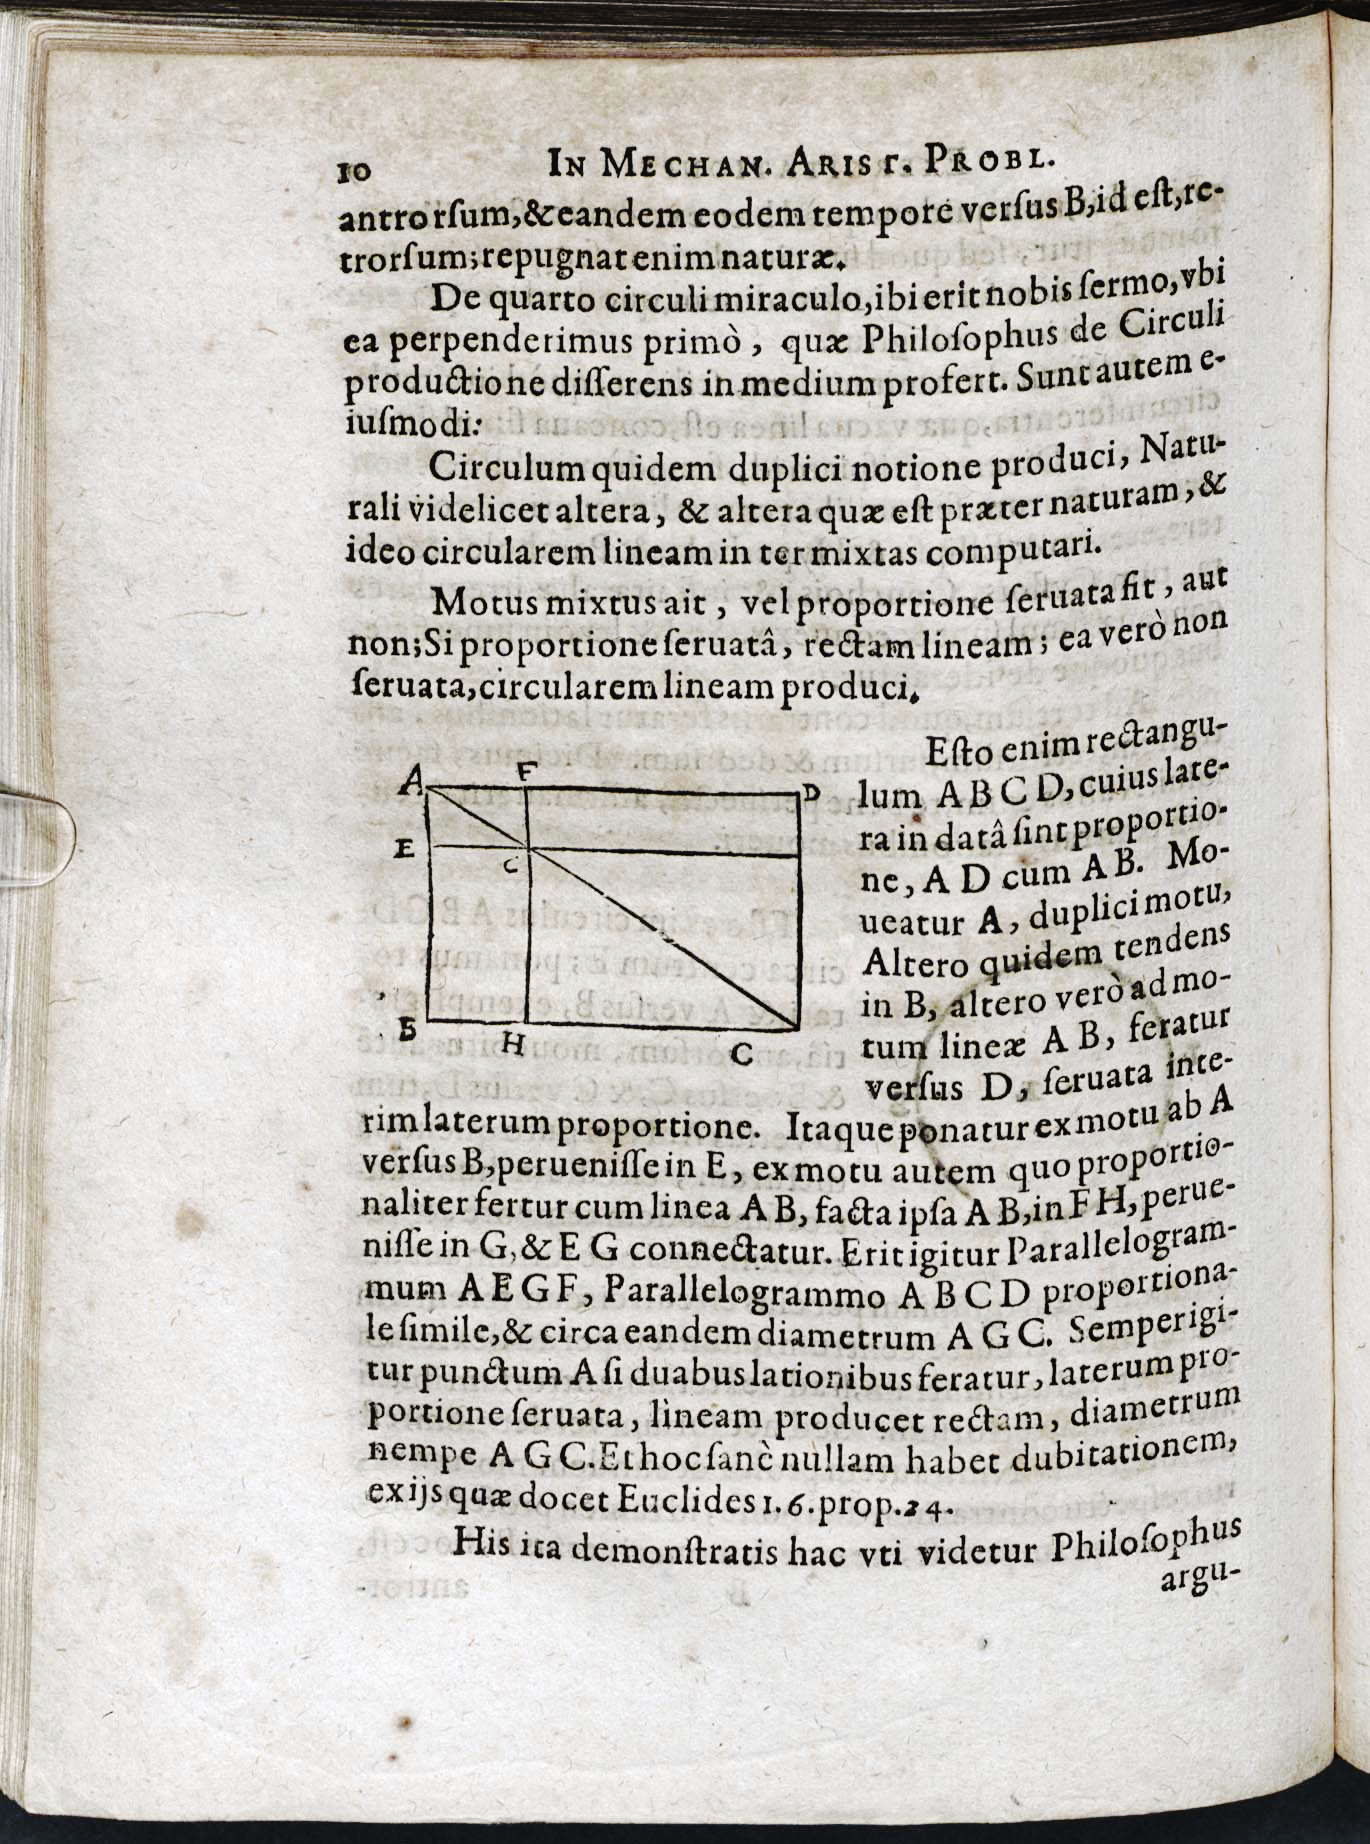 10 IN MECHAN. ARIST. PROBL.
antrorſum,&eandem eodem tempore verſus B,id eſt,re-
trorſum;repugnat enim naturæ.
De quarto circuli miraculo,ibi erit nobis ſermo,vbi
ea perpenderimus primò, quæ Philoſophus de Circuli
productione diſſerens in medium profert. Sunt autem e-
iuſmodi:
Circulum quidem duplici notione produci, Natu-
rali videlicet altera, & altera quæ eſt præter naturam,&
ideo circularem lineam inter mixtas computari.
Motus mixtus ait, vel proportione ſeruata fit, aut
non;Si proportione ſeruatâ, rectam lineam; ea verò non
ſeruata,circularem lineam produci.
Eſto enim rectangu-
lum A B C D,cuius late-
ra in datâ ſint proportio-
ne, A D cum A B. Mo-
ueatur A, duplici motu,
Altero quidem tendens
in B, altero verò ad mo-
tum lineæ A B, feratur
verſus D, ſeruata inte-
A F D
E C
B H C
rim laterum proportione. Itaque ponatur ex motu ab A
verſus B,perueniſſe in E, ex motu autem quo proportio-
naliter fertur cum linea A B, facta ipſa A B,in F H, perue-
niſſe in G,& E G connectatur. Erit igitur Parallelogram-
mum A E G F, Parallelogrammo A B C D proportiona-
le ſimile,& circa eandem diametrum A G C. Semper igi-
tur punctum A ſi duabus lationibus feratur, laterum pro-
portione ſeruata, lineam producet rectam, diametrum
nempe A G C.Et hoc ſanè nullam habet dubitationem,
ex ijs quæ docet Euclides l. 6. prop.24.
His ita demonſtratis hac vti videtur Philoſophus
argu-